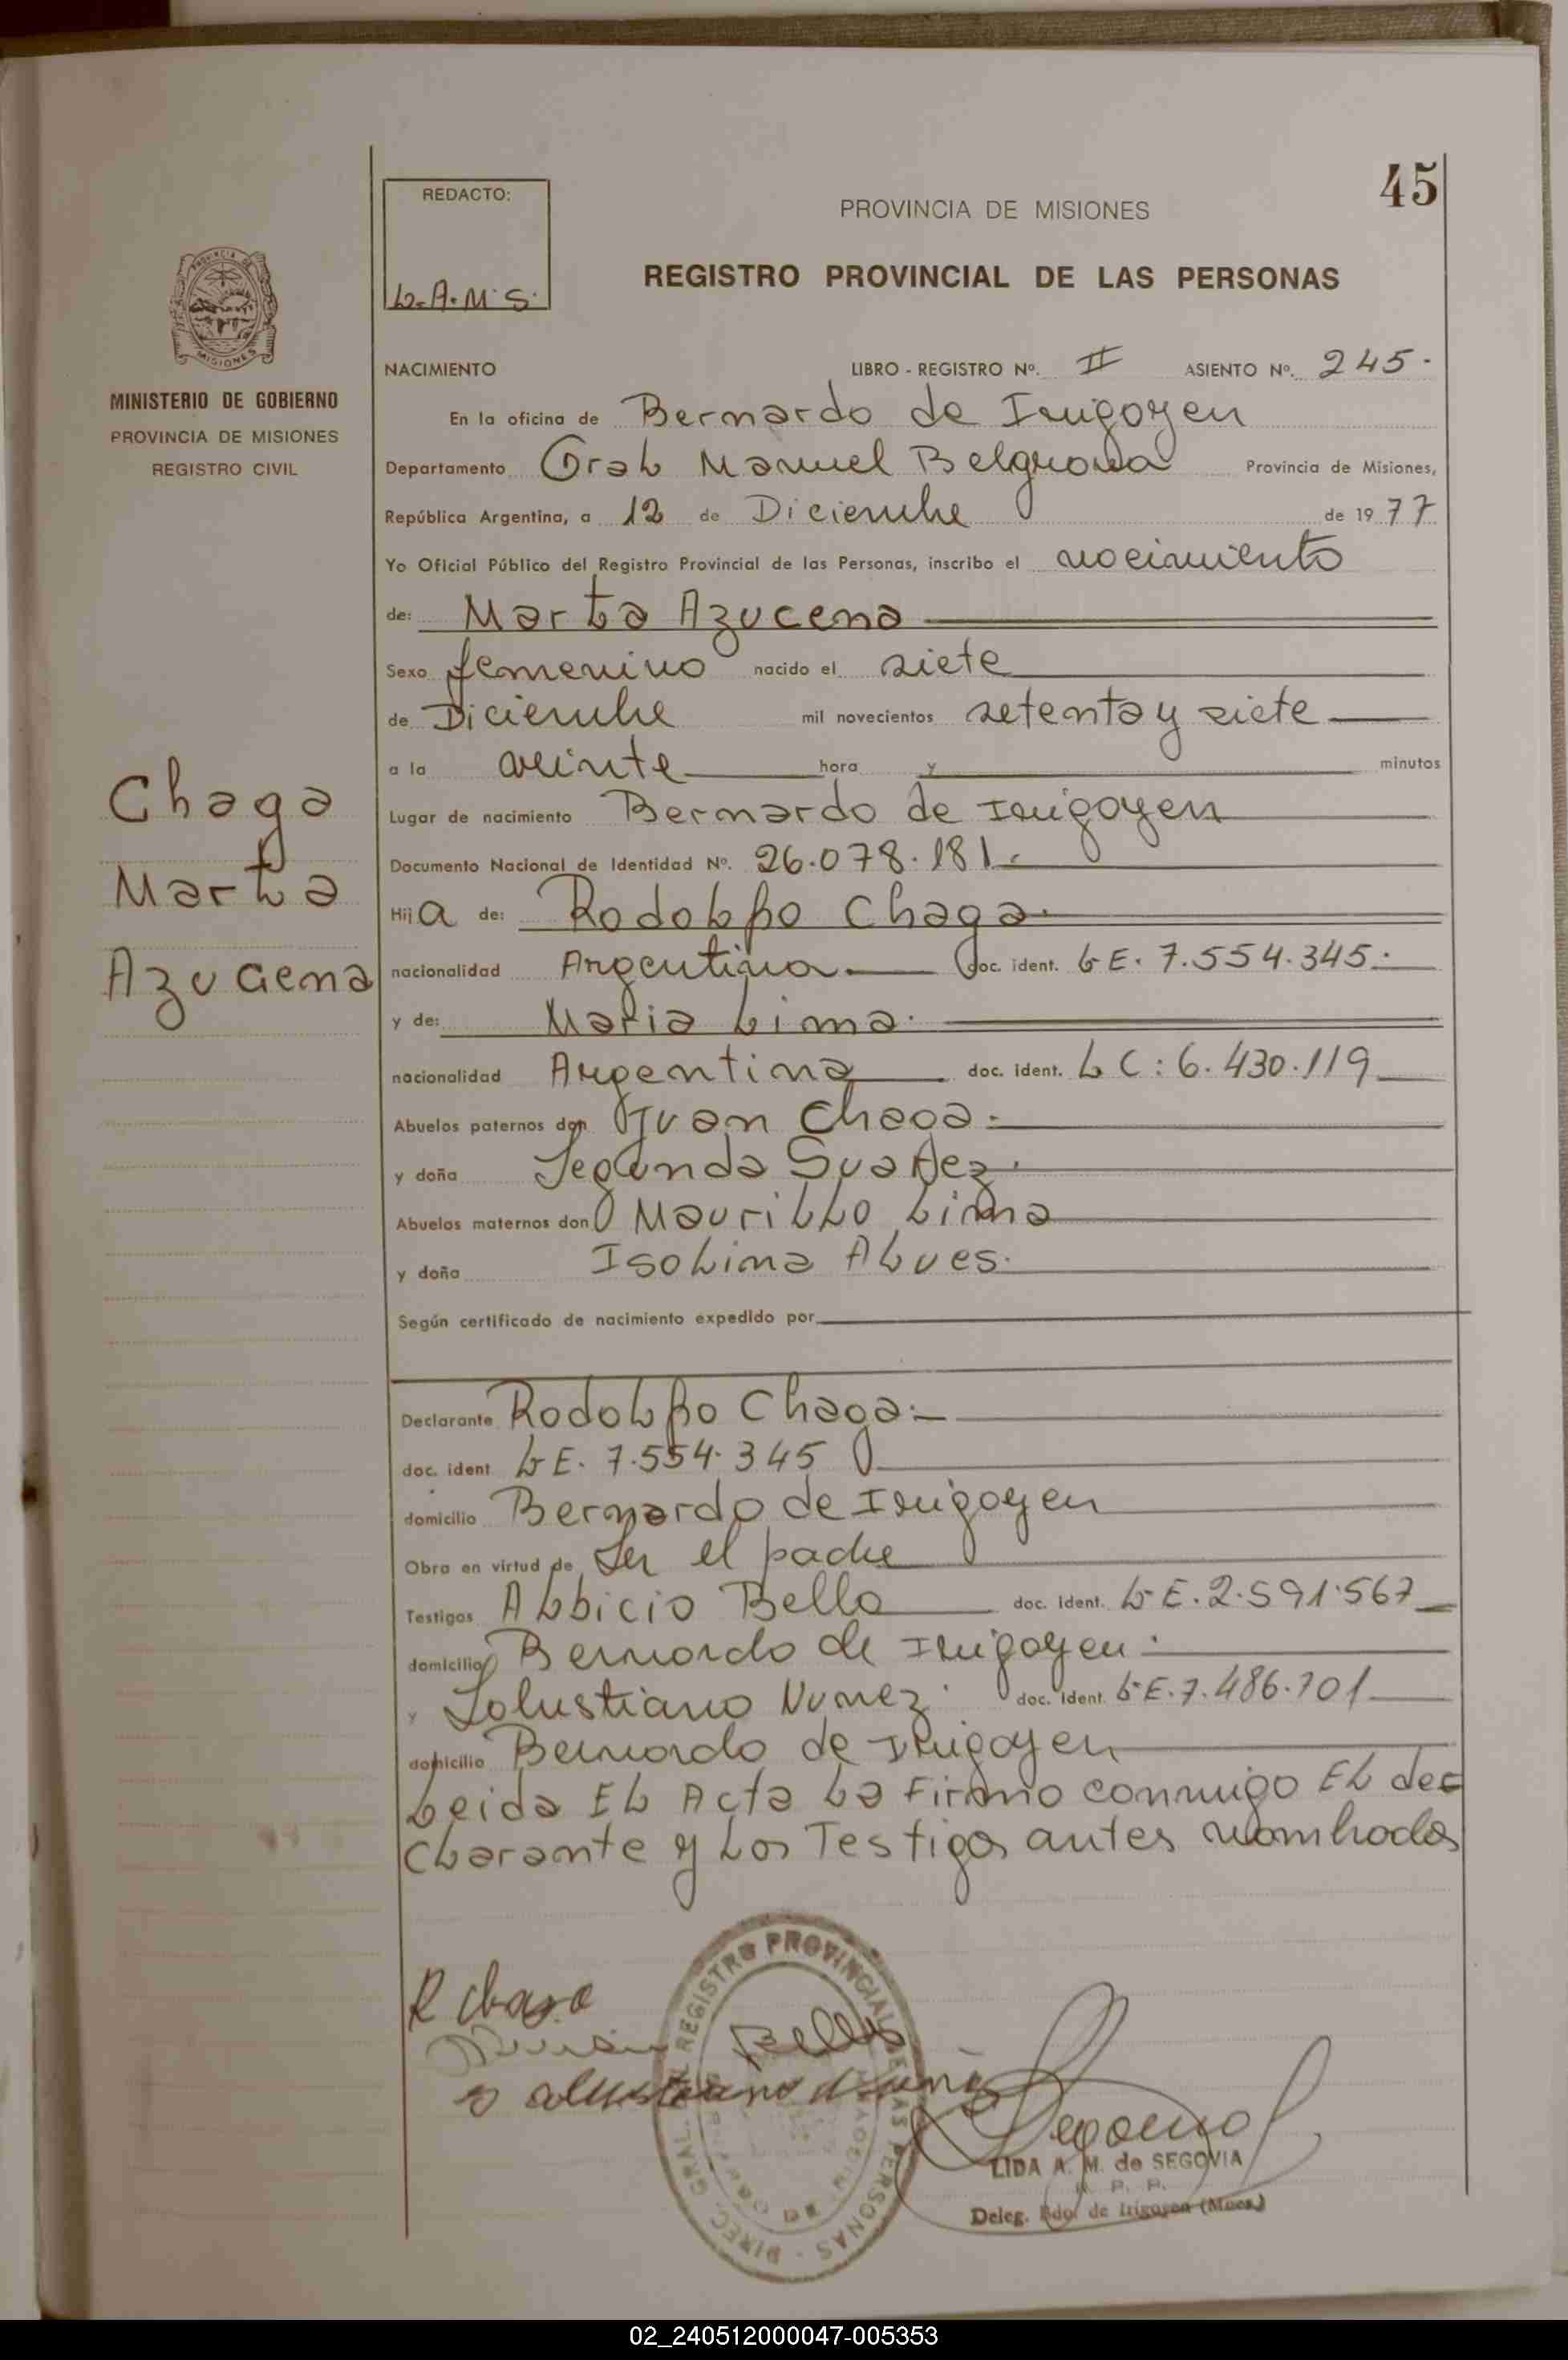 45
REDACTO:
L.A.M.S.
PROVINCIA DE MISIONES
REGISTRO PROVINCIAL DE LAS PERSONAS
PROVINCIA DE
MISIONES
MINISTERIO DE GOBIERNO
PROVINCIA DE MISIONES
REGISTRO CIVIL
NACIMIENTO LIBRO - REGISTRO Nº. II ASIENTO Nº. 245.
En la oficina de Bernardo de Irigoyen
Departamento Gral Manuel Belgrano Provincia de Misiones,
República Argentina, a 12 de Diciembre de 1977
Yo Oficial Público del Registro Provincial de las Personas, inscribo el nacimiento
de: Marta Azucena
Sexo femenino nacido el siete
de Diciembre mil novecientos setenta y siete
a la veinte hora y minutos
Chaga
Marta
Azucena
Lugar de nacimiento Bernardo de Irigoyen
Documento Nacional de Identidad Nº. 26.078.181.
Hija de: Rodolfo Chaga.
nacionalidad Argentina doc. ident. LE. 7.554.345.
y de: Maria Lima.
nacionalidad Argentina doc. ident. LC: 6.430.119
Abuelos paternos don Juan Chaga.
y doña Segunda Suarez.
Abuelos maternos don Maurillo Lima
y doña Isolina Alves.
Según certificado de nacimiento expedido por
Declarante Rodolfo Chaga.
doc. ident LE. 7.554.345
domicilio Bernardo de Irigoyen
Obra en virtud de Ser el padre
Testigos Albicio Bello doc. ident. LE. 2.591.567
domicilio Bernardo de Irigoyen.
y Solustiano Nunez. doc. ident. LE. 7.486.701
domicilio Bernardo de Irigoyen
Leida EL Acta La Firmo conmigo EL dec
Clarante y Los Testigos antes nombrados
R Chaga
Bello
LIDA A. M. de SEGOVIA
R. P. P.
Deleg. Bdo. de Irigoyen (Mnes.)
DIREC. GRAL. DEL REGISTRO PROVINCIAL DE LAS PERSONAS
02_240512000047-005353